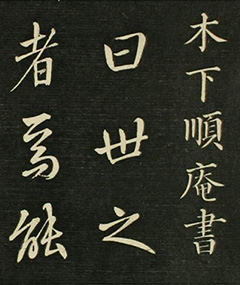 木下順庵書
曰世之
者寫能